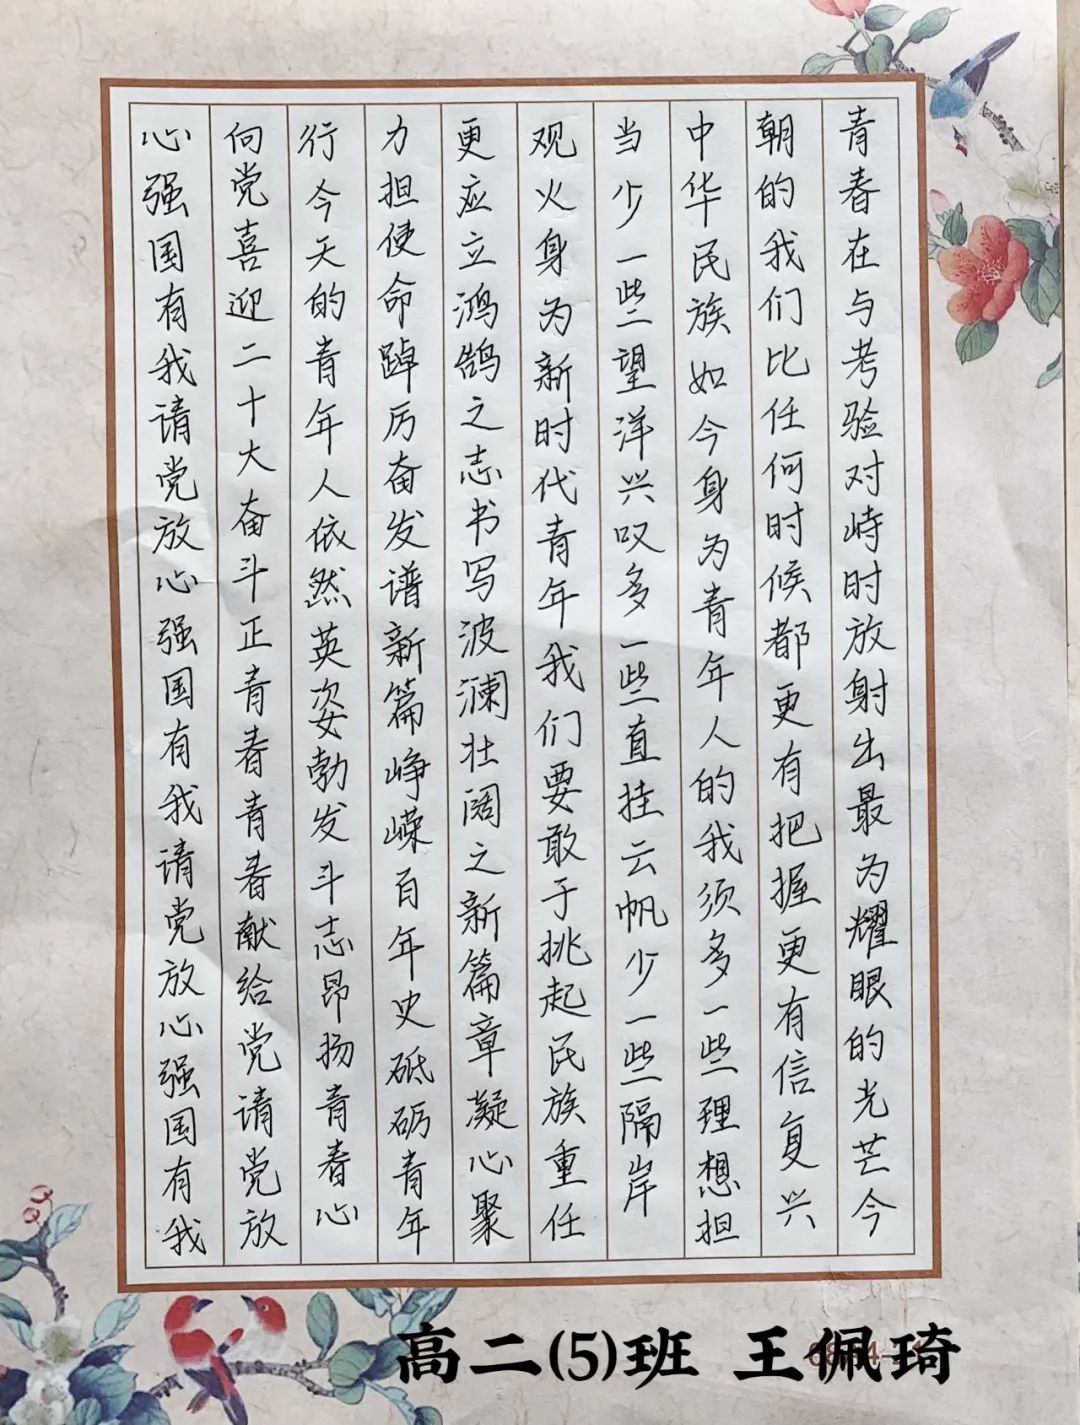 青春在与考验对峙时放射出最为耀眼的光芒今
朝的我们比任何时候都更有把握更有信复兴
中华民族如今身为青年人的我须多一些理想担
当少一些望洋兴叹多一些直挂云帆少一些隔岸
观火身为新时代青年我们要敢于挑起民族重任
更应立鸿鹄之志书写波澜壮阔之新篇章凝心聚
力担使命踔厉奋发谱新篇峥嵘百年史砥砺青年
行今天的青年人依然英姿勃发斗志昂扬青春心
向党喜迎二十大奋斗正青春青春献给党请党放
心强国有我请党放心强国有我请党放心强国有我
高二(5)班 王佩琦